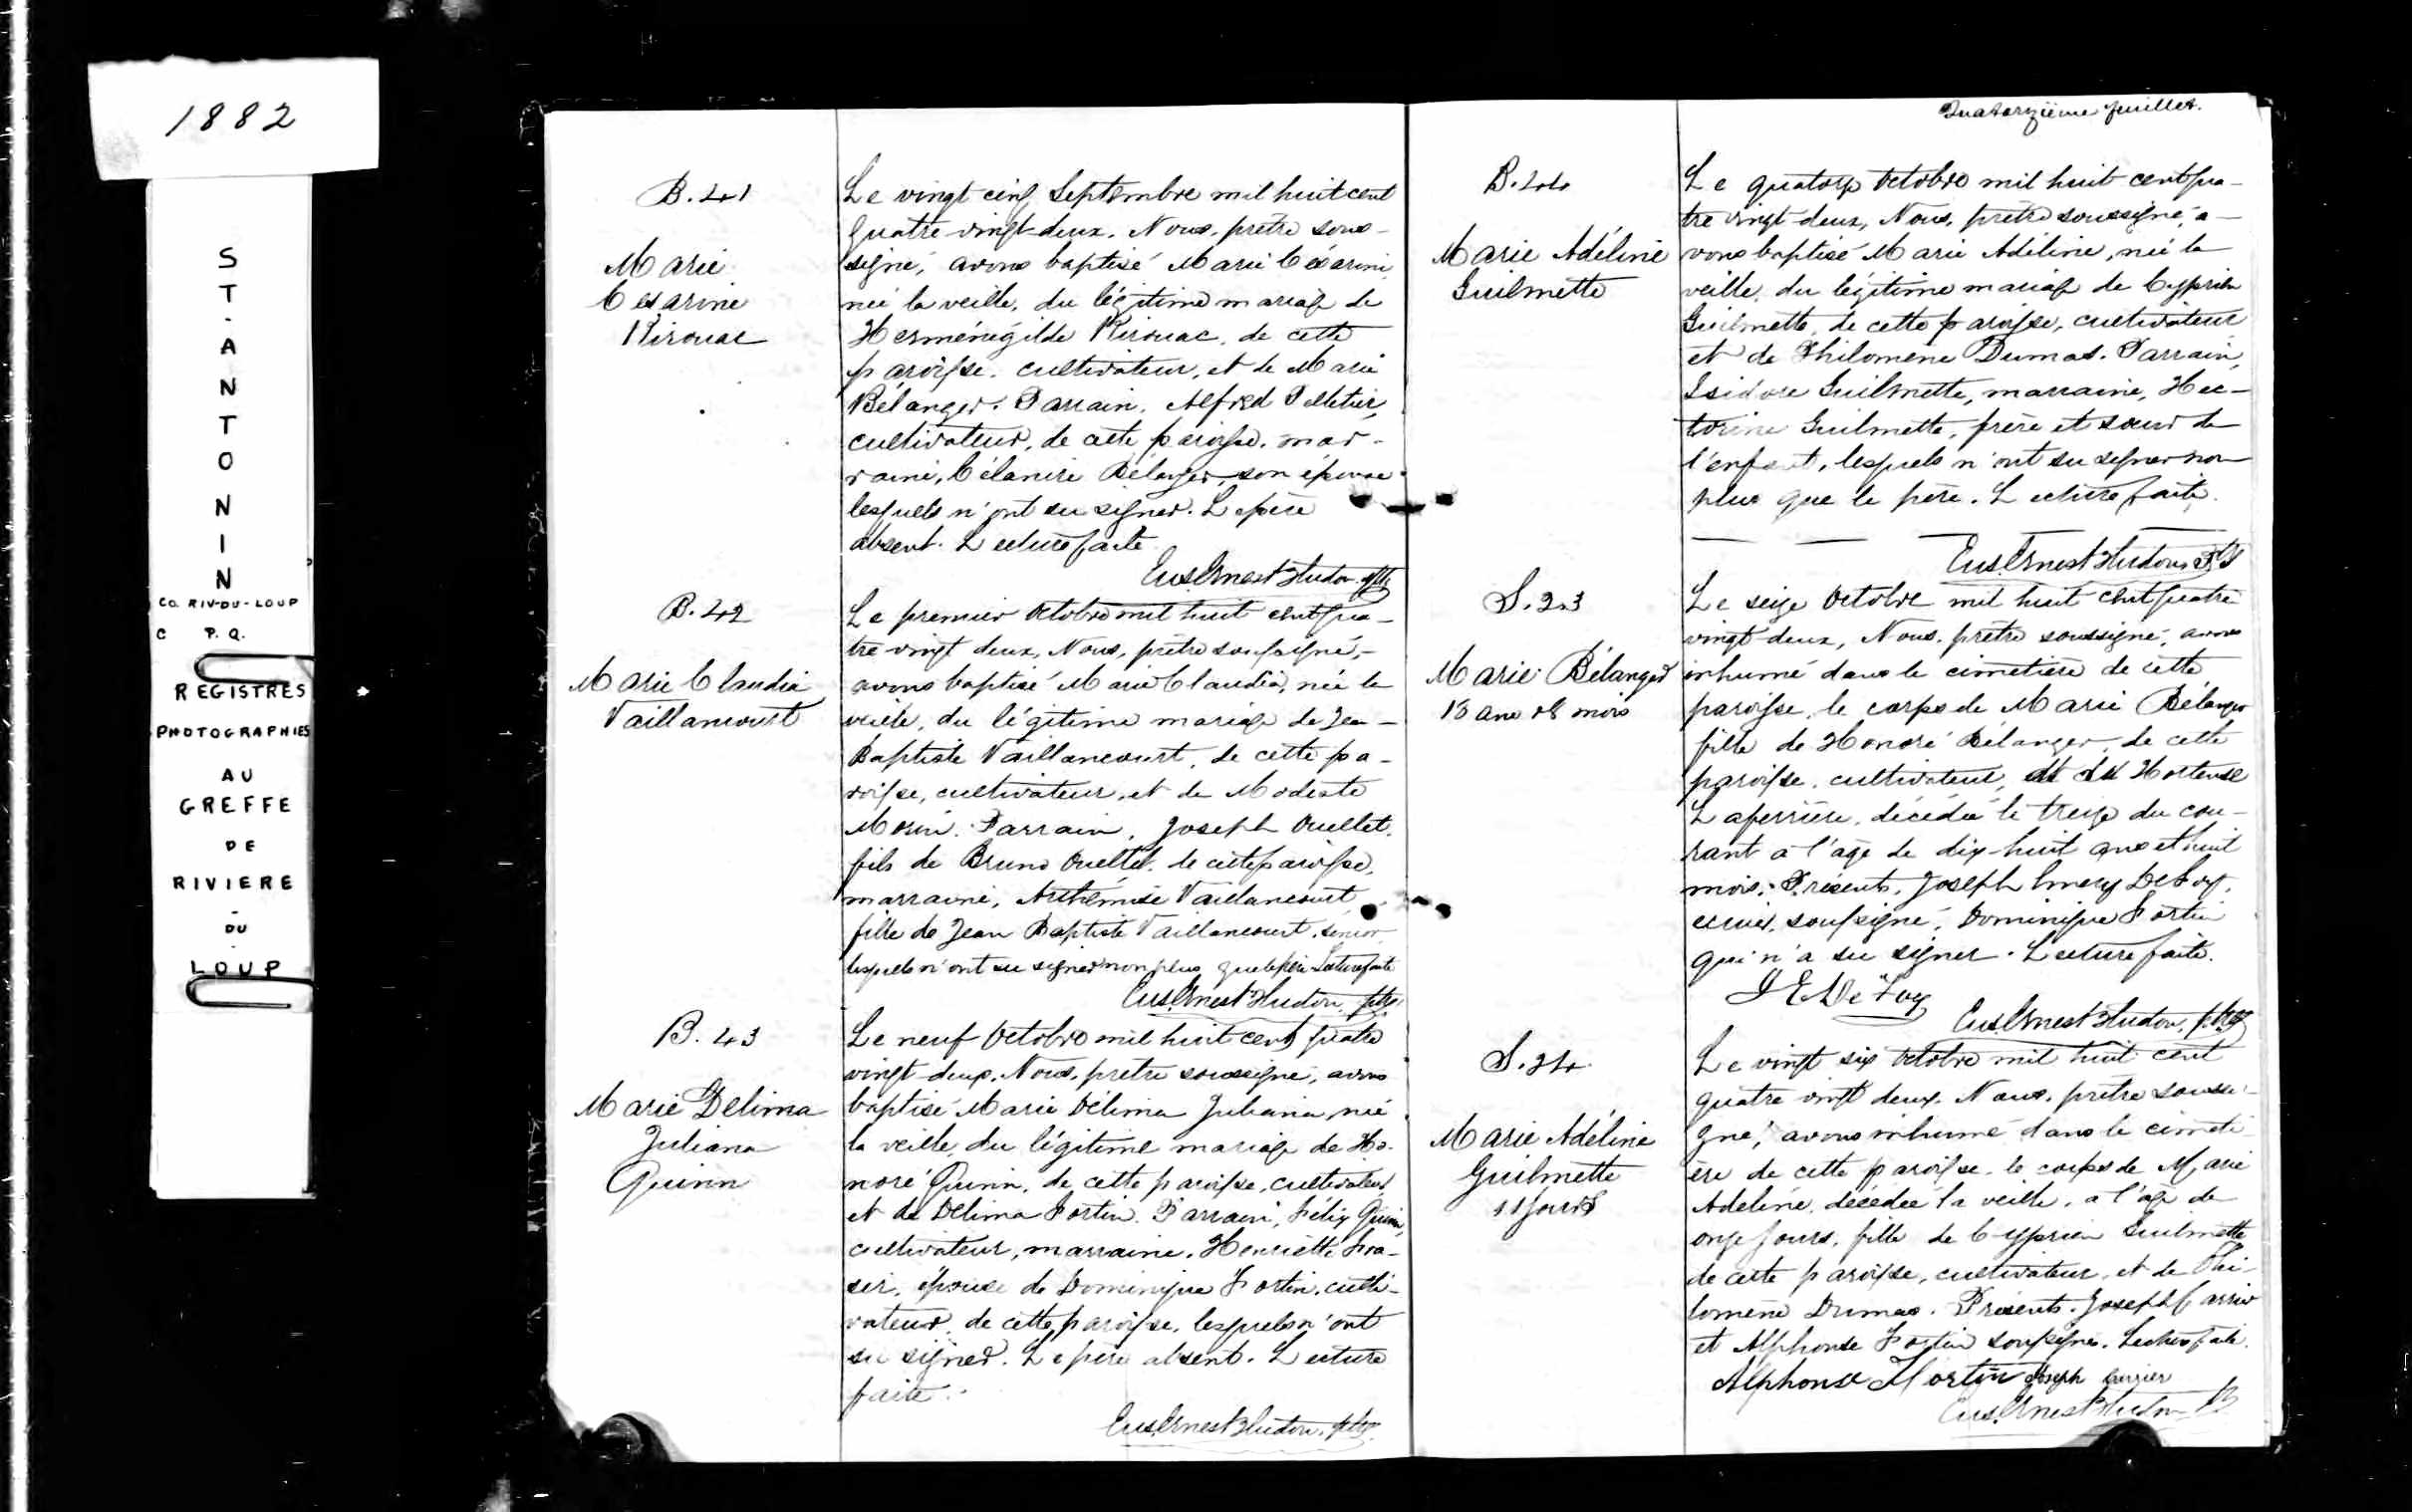 1882
ST. ANTONIN
CO. RIV-DU-LOUP
C P.Q.
REGISTRES
PHOTOGRAPHIES
AU
GREFFE
DE
RIVIERE
-
DU
-
LOUP
B. 41
Marie
Césarine
Kirouac
Le vingt cinq Septembre mil huit cent
quatre-vingt-deux. Nous, prêtre sous-
signé, avons baptisé Marie Césarine
née la veille, du légitime mariage de
Herménégilde Kirouac, de cette
paroisse, cultivateur, et de Marie
Bélanger. Parrain, Alfred Pelletier,
cultivateur, de cette paroisse, mar-
raine, Célanire Bélanger, son épouse
lesquels n'ont su signer. Le père
absent. Lecture faite.
Eus. Ernest Hudon ptre
B. 42
Marie Claudia
Vaillancourt
Le premier Octobre mil huit cent qua-
tre-vingt deux, Nous, prêtre soussigné,-
avons baptisé Marie Claudia, née la
veille, du légitime mariage de Jean-
Baptiste Vaillancourt, de cette pa-
roisse, cultivateur, et de Modeste
Morin. Parrain, Joseph Ouellet,
fils de Bruno Ouellet, de cette paroisse,
marraine, Arthémise Vaillancourt
fille de Jean Baptiste Vaillancourt, senior,
lesquels n'ont su signer non plus que le père. Lecture faite
Eus. Ernest Hudon, ptre
B. 43
Marie Delima
Juliana
Quinn
Le neuf Octobre mil huit cent quatre
vingt-deux, Nous, prêtre soussigné, avons
baptisé Marie Délima Juliana, née
la veille, du légitime mariage de Ho-
noré Quinn, de cette paroisse, cultivateur
et de Délima Fortin. Parrain, Félix Quinn,
cultivateur, marraine, Henriette Fra-
ser, épouse de Dominique Fortin, culti-
vateur, de cette paroisse, lesquels n'ont
su signer. Le père absent. Lecture
faite.
Eus. Ernest Hudon, ptre
Quatorzième feuillet.
B. 44
Marie Adéline
Guilmette
Le quatorze Octobre mil huit cent qua-
tre vingt-deux, Nous, prêtre soussigné, a-
vons baptisé Marie Adéline, née la
veille, du légitime mariage de Cyprien
Guilmette, de cette paroisse, cultivateur
et de Philomène Dumas. Parrain,
Isidore Guilmette, marraine, Hec-
torine Guilmette, frère et soeur de
l'enfant, lesquels n'ont su signer non
plus que le père. Lecture faite.
Eus. Ernest Hudon
S. 23
Marie Bélanger
18 ans 8 mois
Le seize Octobre mil huit cent quatre
vingt-deux, Nous, prêtre soussigné, avons
inhumé dans le cimetière de cette
paroisse, le corps de Marie Bélanger
fille de Honoré Bélanger, de cette
paroisse, cultivateur, et de Hortense
Laperrière, décédée le treize du cou-
rant à l'âge de dix-huit ans et huit
mois. Présents, Joseph Emery DeFoy,
soussigné, Dominique Fortin
qui n'a su signer. Lecture faite.
J E De Foy
Eus. Ernest Hudon, ptre
S. 24
Marie Adéline
Guilmette
11 jours
Le vingt six Octobre mil huit cent
quatre vingt deux, Nous, prêtre soussi-
gné, avons inhumé dans le cimeti-
ère de cette paroisse, le corps de Marie
Adeline, décédée la veille, à l'âge de
onze jours, fille de Cyprien Guilmette
de cette paroisse, cultivateur, et de Phi-
lomène Dumas. Présents, Joseph
et Alphonse Fortin soussignés. Lecture faite.
Alphonse Fortin Joseph
Eus. Ernest Hudon